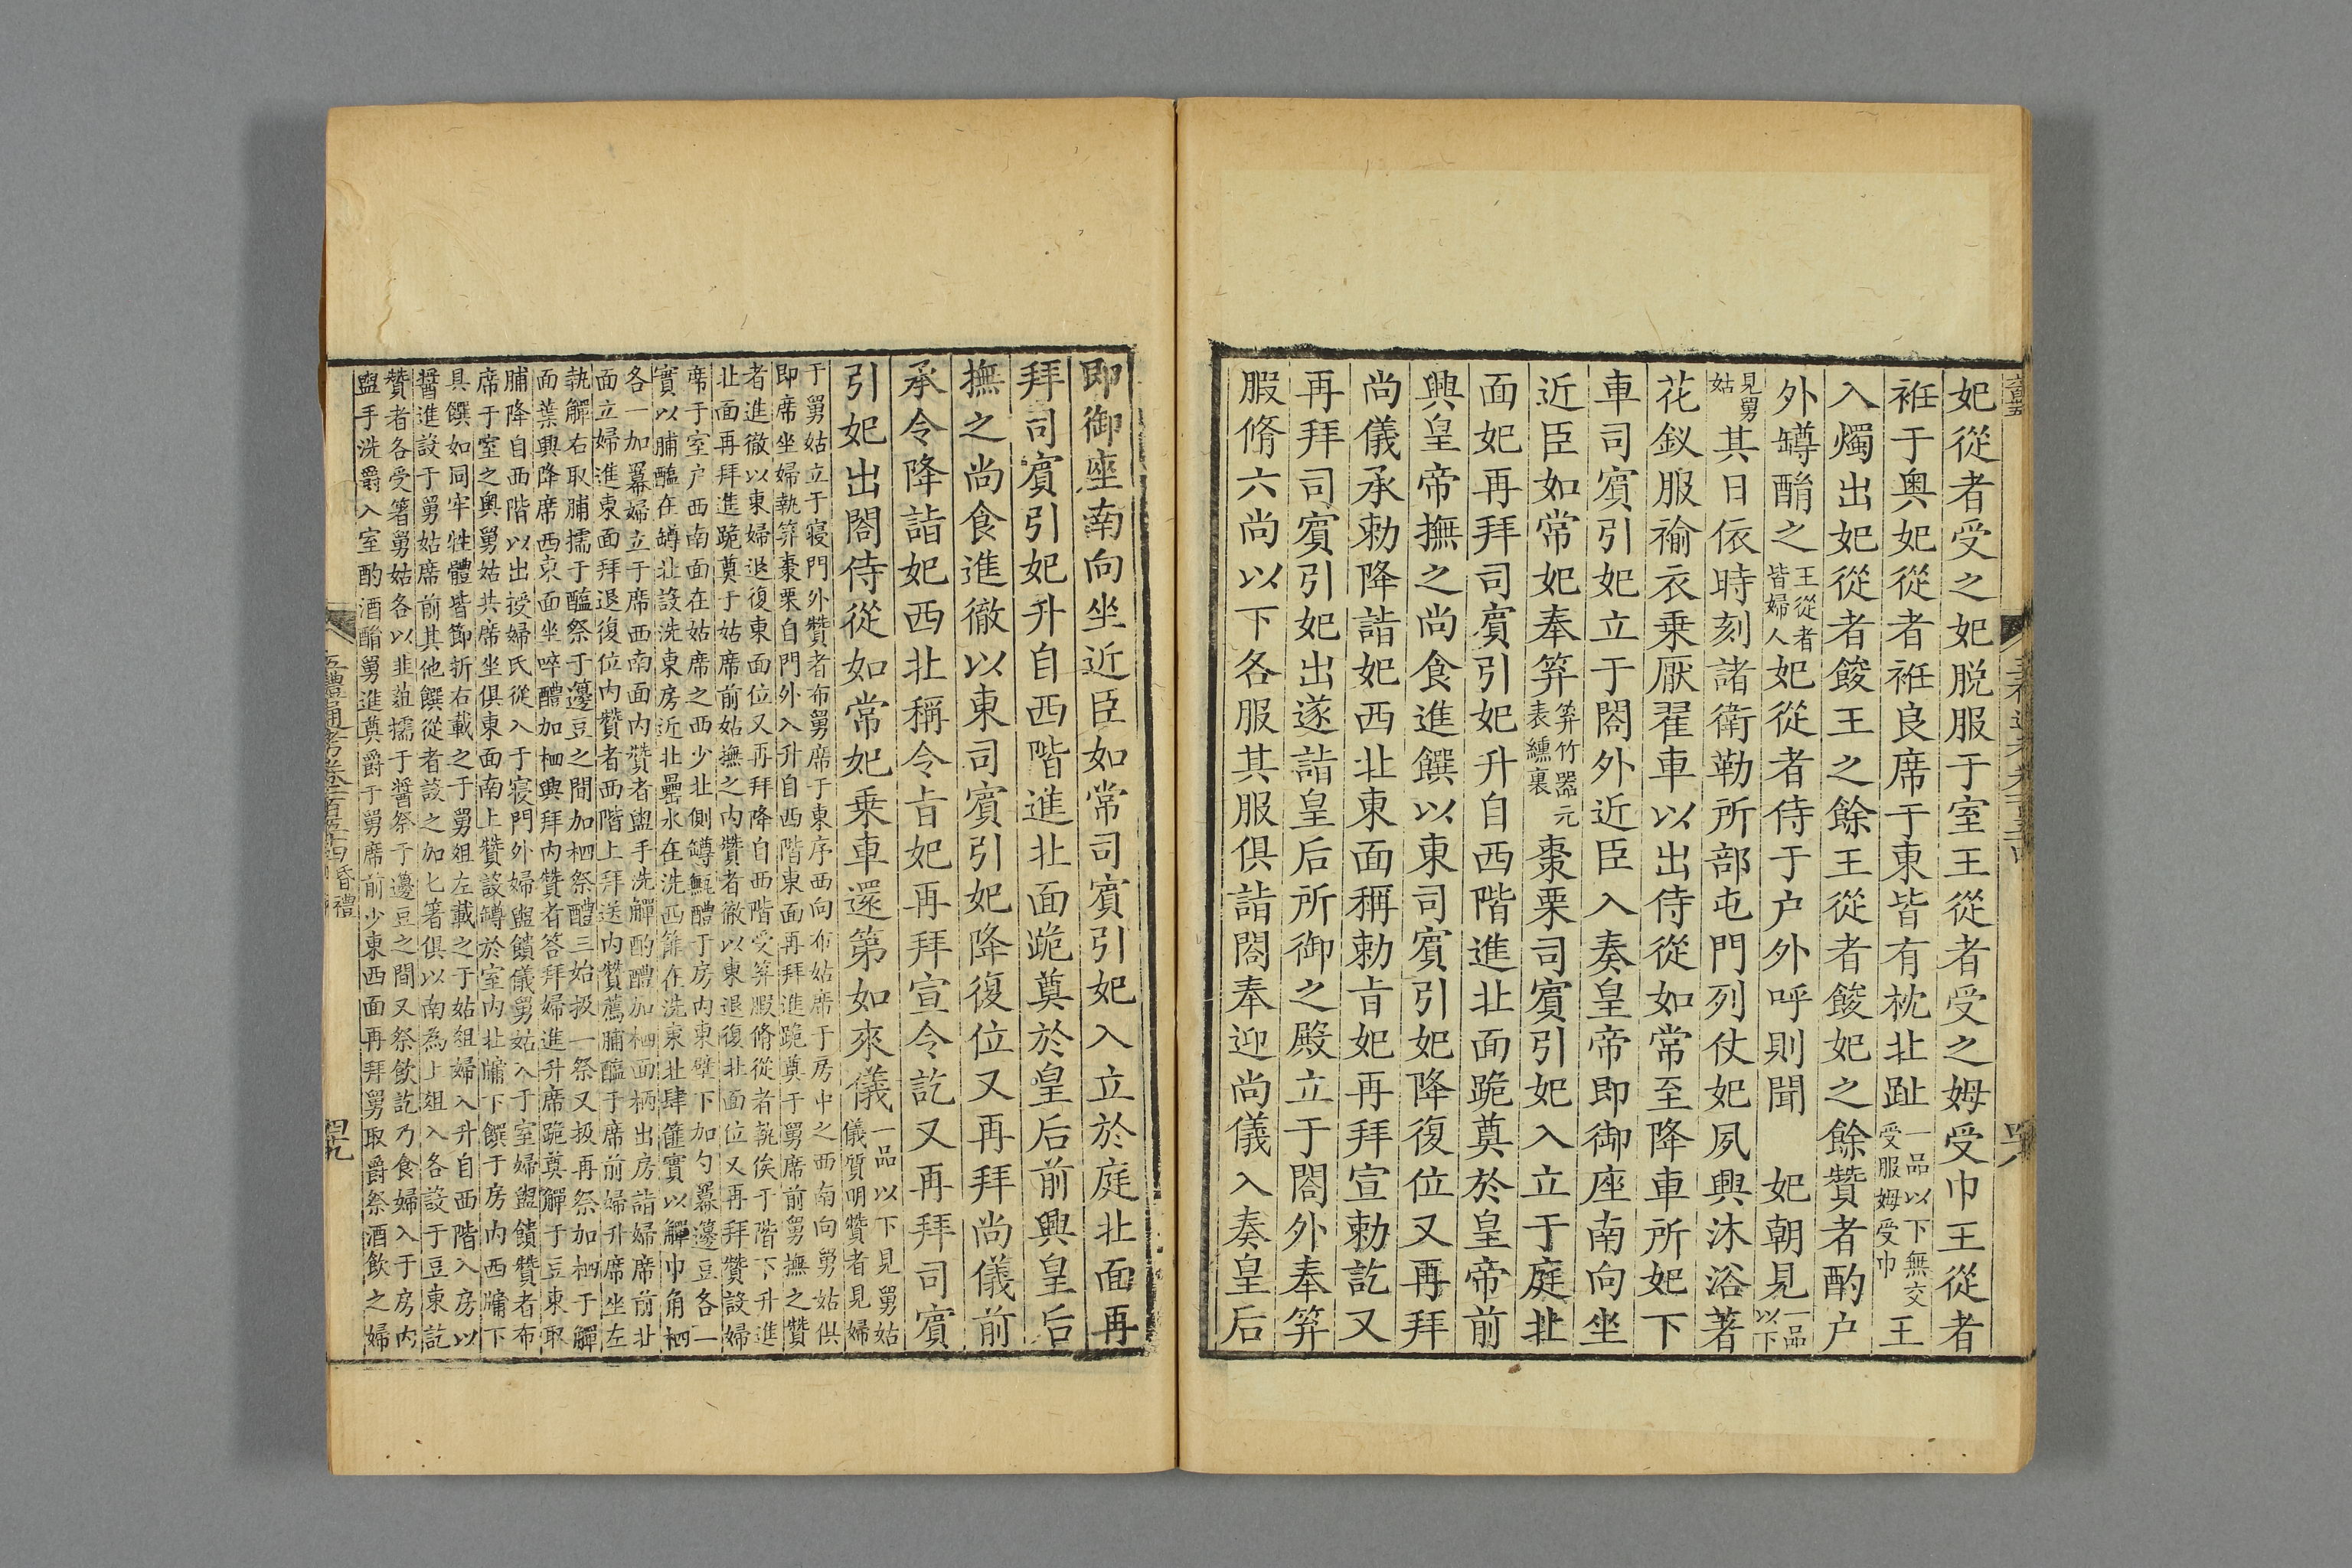 妃從者受之妃脫服于室王從者受之姆受巾王從者
袵于奧妃從者袵良席于東皆有枕北趾一品以下無交受服姆受巾王
入燭出妃從者餕王之餘王從者餕妃之餘贊者酌户
外罇酳之王從者皆婦人妃從者侍于户外呼則聞　妃朝見一品以下
見舅姑其日依時刻諸衛勒所部屯門列仗妃夙興沐浴著
花釵服褕衣乗厭翟車以出侍從如常至降車所妃下
車司賔引妃立于閤外近臣入奏皇帝即御座南向坐
近臣如常妃奉笲笲竹器元表纁裏棗栗司賔引妃入立于庭北
面妃再拜司賔引妃升自西階進北面跪奠於皇帝前
興皇帝撫之尚食進饌以東司賔引妃降復位又再拜
尚儀承勅降詣妃西北東面稱勅㫖妃再拜宣勅訖又
再拜司賔引妃出遂詣皇后所御之殿立于閤外奉笲
腶脩六尚以下各服其服俱詣閤奉迎尚儀入奏皇后
即御座南向坐近臣如常司賔引妃入立於庭北面再
拜司賔引妃升自西階進北面跪奠於皇后前興皇后
撫之尚食進徹以東司賔引妃降復位又再拜尚儀前
承令降詣妃西北稱令㫖妃再拜宣令訖又再拜司賔
引妃出閤侍從如常妃乗車還第如來儀一品以下見舅姑儀質明贊者見婦
于舅姑立于寝門外贊者布舅席于東序西向布姑席于房中之西南向舅姑俱
即席坐婦執笲棗栗自門外入升自西階東面再拜進跪奠于舅席前舅撫之贊
者進徹以東婦退復東面位又再拜降自西階受笲腶脩從者執俟于階下升進
北面再拜進跪奠于姑席前姑撫之内贊者徹以東退復北面位又再拜贊設婦
席于室户西南面在姑席之西少北側罇甒醴于房内東壁下加勺羃籩豆各一
實以脯醢在罇北設洗東房近北罍水在洗西篚在洗東北肆篚實以觶巾角柶
各一加羃婦立于席西南面内贊者盥手洗觶酌醴加柶面柄出房詣婦席前北
面立婦進東面拜退復位内贊者西階上拜送内贊薦脯醢于席前婦升席坐左
執觶右取脯擩于醢祭于籩豆之間加柶祭醴三始扱一祭又扱再祭加柶于觶
面葉興降席西東面坐啐醴加柶興拜内贊者答拜婦進升席跪奠觶于豆東取
脯降自西階以出授婦氏從入于寝門外婦盥饋儀舅姑入于室婦盥饋贊者布
席于室之奧舅姑共席坐俱東面南上贊設罇於室内北牖下饌于房内西牖下
具饌如同牢牲體皆節折右載之于舅俎左載之于姑俎婦入升自西階入房以
醤進設于舅姑席前其他饌從者設之加匕箸俱以南為上俎入各設于豆東訖
贊者各受箸舅姑各以韭菹擩于醤祭于籩豆之間又祭飲訖乃食婦入于房内
盥手洗爵入室酌酒酳舅進奠爵于舅席前少東西面再拜舅取爵祭酒飲之婦
五禮通考卷一百五十四昏禮
四十九